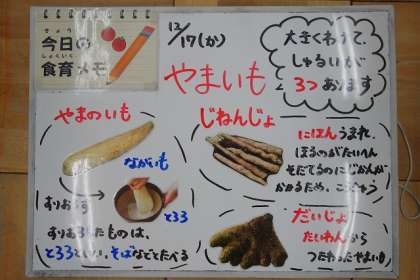 きょう
今日の
しょくいく
食育メモ
12/17(か)
やまいも
大きくわけて、
しゅるいが
3つあります
やまのいも
ながいも
すりおろす
とろろ
すりおろしたものは、
とろろといい、そばなどとたべる
じねんじょ
にほんうまれ。
ほるのがたいへん
そだてるのにじかんが
かかるため、こうきゅう
だいじょ
たいわんから
つたわったやまいも